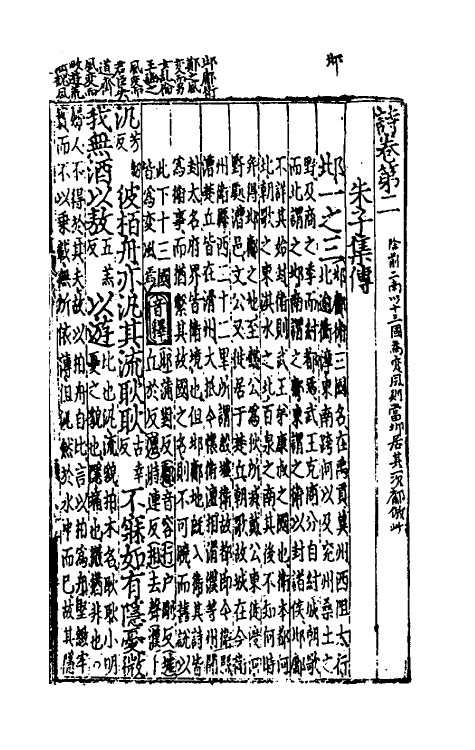 邶
詩卷第二
朱子集傳
邶一之三
邶鄘衛三國名在禹貢冀州西阻太行
北逾衡漳東南跨河以及兗州桑土之
野及商之季而紂都焉武王克商分自紂城朝歌
而北謂之邶南謂之鄘東謂之衛以封諸侯邶鄘
不詳其始封衛則武王弟康叔之國也衛本都河
北朝歌之東淇水之北百泉之南其後不知何時
并得邶鄘之地至懿公為狄所滅戴公東徙渡河
野處漕邑文公又徙居于楚丘朝歌故城在今衛
州衛縣西二十二里所謂殷墟衛故都即今衛縣
漕楚丘皆在滑州大抵今懷衛澶相滑濮等州開
封大名府界皆衛境也但邶鄘地既入衛其詩皆
為衛事而猶繫其故國之名則不可曉而舊說以
此下十三國
皆為變風焉
音釋
汎芳劒反彼柏舟亦汎其流耿耿古幸反不寐如有隱憂微
我無酒以敖五羔反以遊
比也汎流貌柏木名耿耿小明
憂之貌也隱痛也微猶非也○
婦人不得於其夫故以柏舟自比言以柏為舟堅緻牢
實而不以乘載無所依薄但汎然於水中而已故其隱